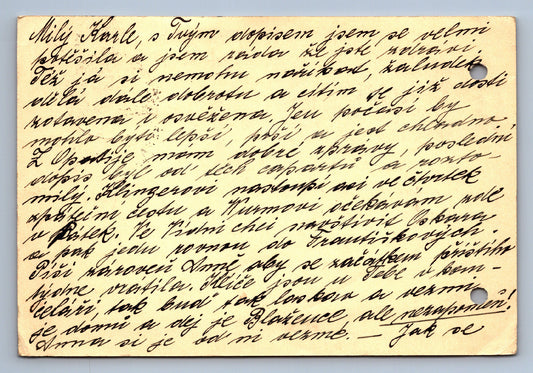 Milý Karle, s Tvým dopisem jsem se velmi
potěšila a jsem ráda že jste zdrávi.
Též já si nemohu naříkat, žaludek
dělá dále dobrotu a cítím se již dosti
zotavena i osvěžena. Jen počasí by
mohlo býti lepší, prší a jest chladno.
Z Opatije mám dobré zprávy, poslední
dopis byl od těch capartů a rozto-
milý. Klingerovi nastoupí asi ve čtvrtek
zpáteční cestu a Wurmovi očekávám zde
v Pátek. Ve Vídni chci navštívit Oskara
a pak jedu rovnou do Františkových.
Píši zároveň Anně aby se začátkem příštího
týdne vrátila. Klíče jsou u Tebe v kan-
celáři, tak buď tak laskav a vezmi
je domů a dej je Blažence ale nezapomeň!
Anna si je od ní vezme. — Jak se